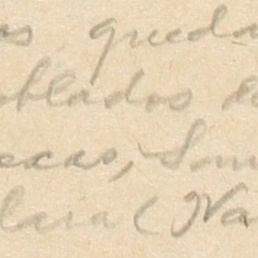 as queda
oblados de
ecas, Son
lara (Na